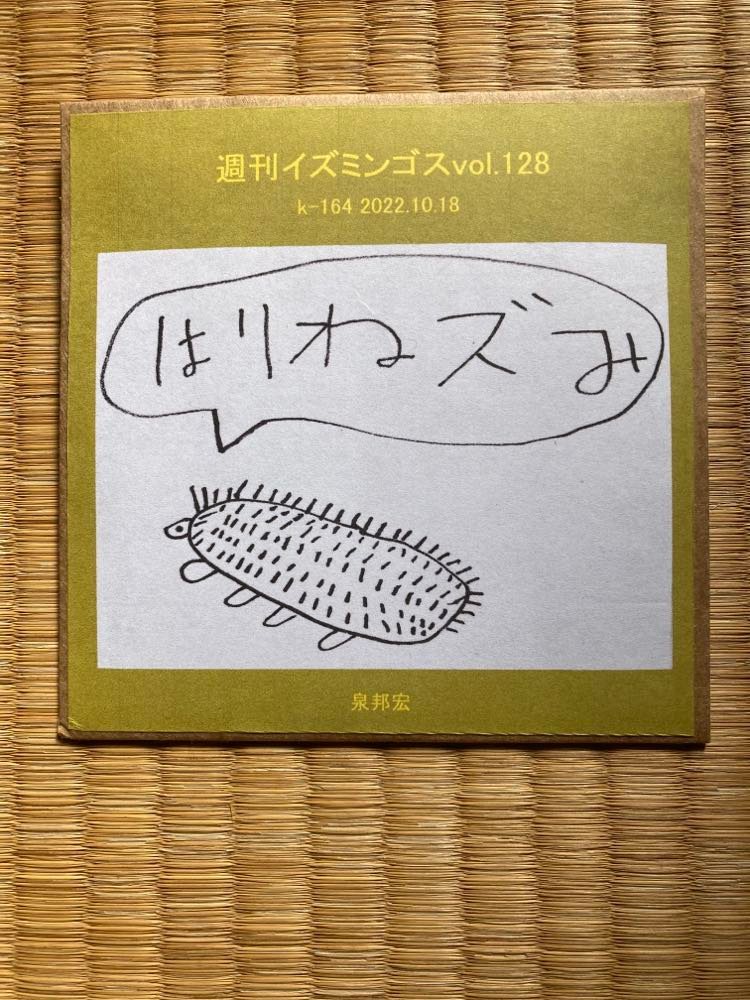 週刊イズミンゴスvol.128
k-164 2022.10.18
はりねズみ
泉邦宏